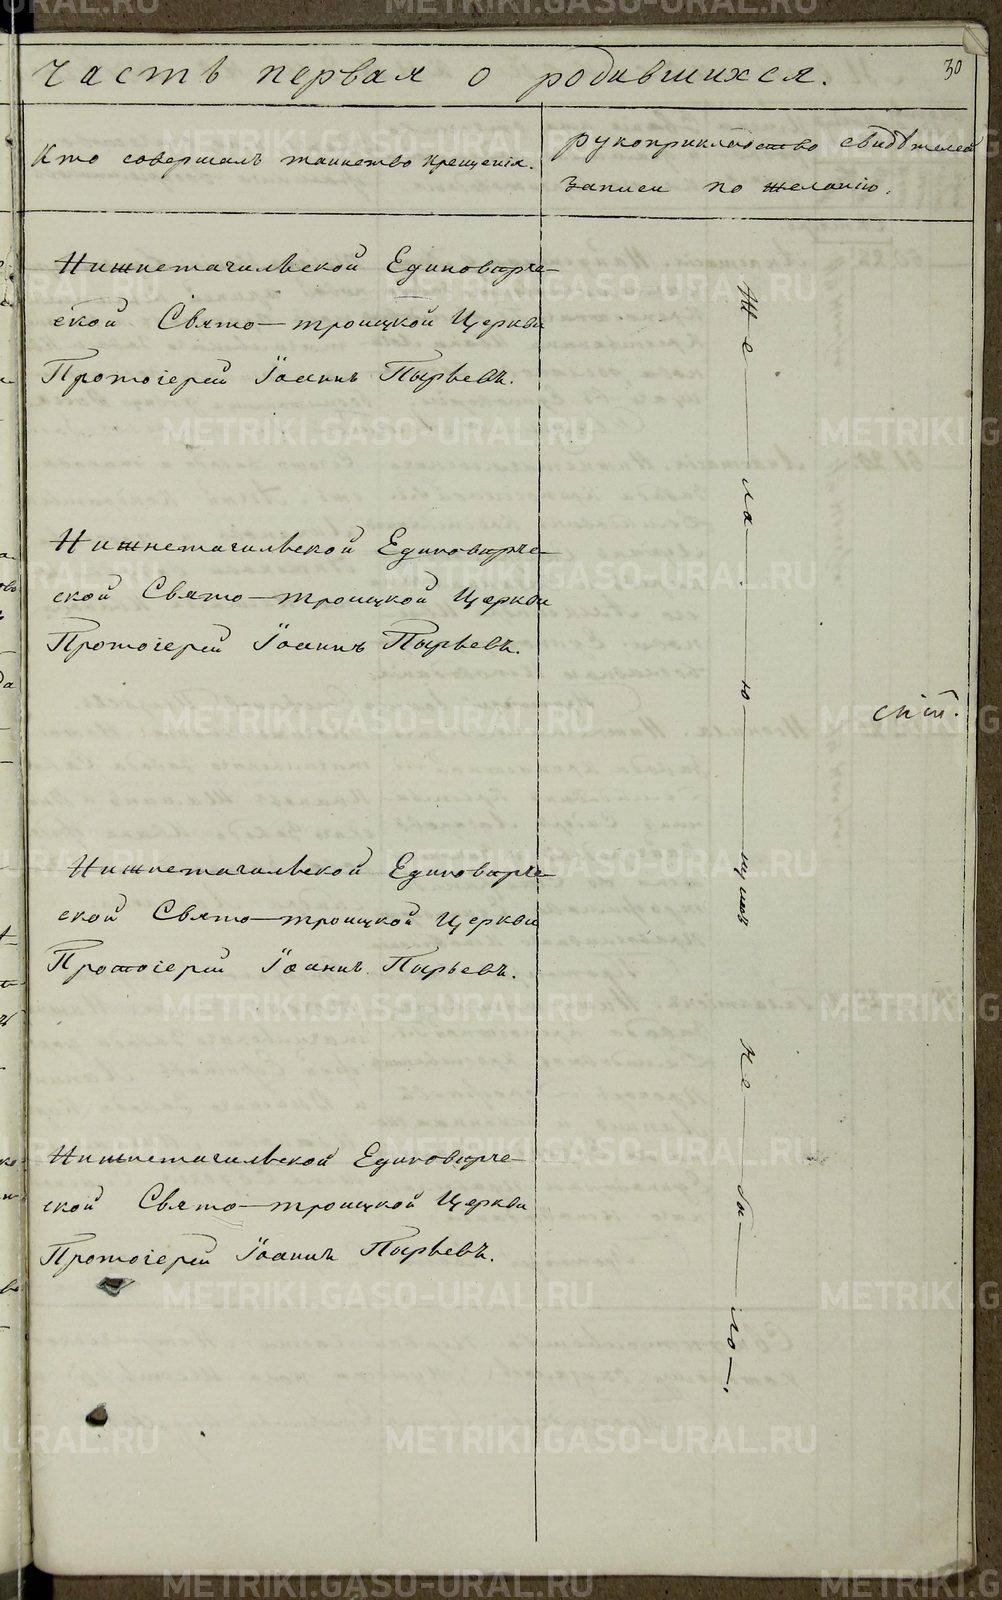 часть первая о родившихся.
30
Кто совершалъ таинство крещенія.
рукоприкладство свидѣтелей
записи по желанію.
Нижнетагильской Единовѣрче-
ской Свято-троицкой Церкви
Протоіерей Іоаннъ Пырьевъ.
Нижнетагильской Единовѣрче-
ской Свято-троицкой Церкви
Протоіерей Іоаннъ Пырьевъ.
Нижнетагильской Единовѣрче-
ской Свято-троицкой Церкви
Протоіерей Іоаннъ Пырьевъ.
Нижнетагильской Единовѣрче-
ской Свято-троицкой Церкви
Протоіерей Іоаннъ Пырьевъ.
Же—ла—ю—щихъ не—бы—ло—.
METRIKI.GASO-URAL.RU